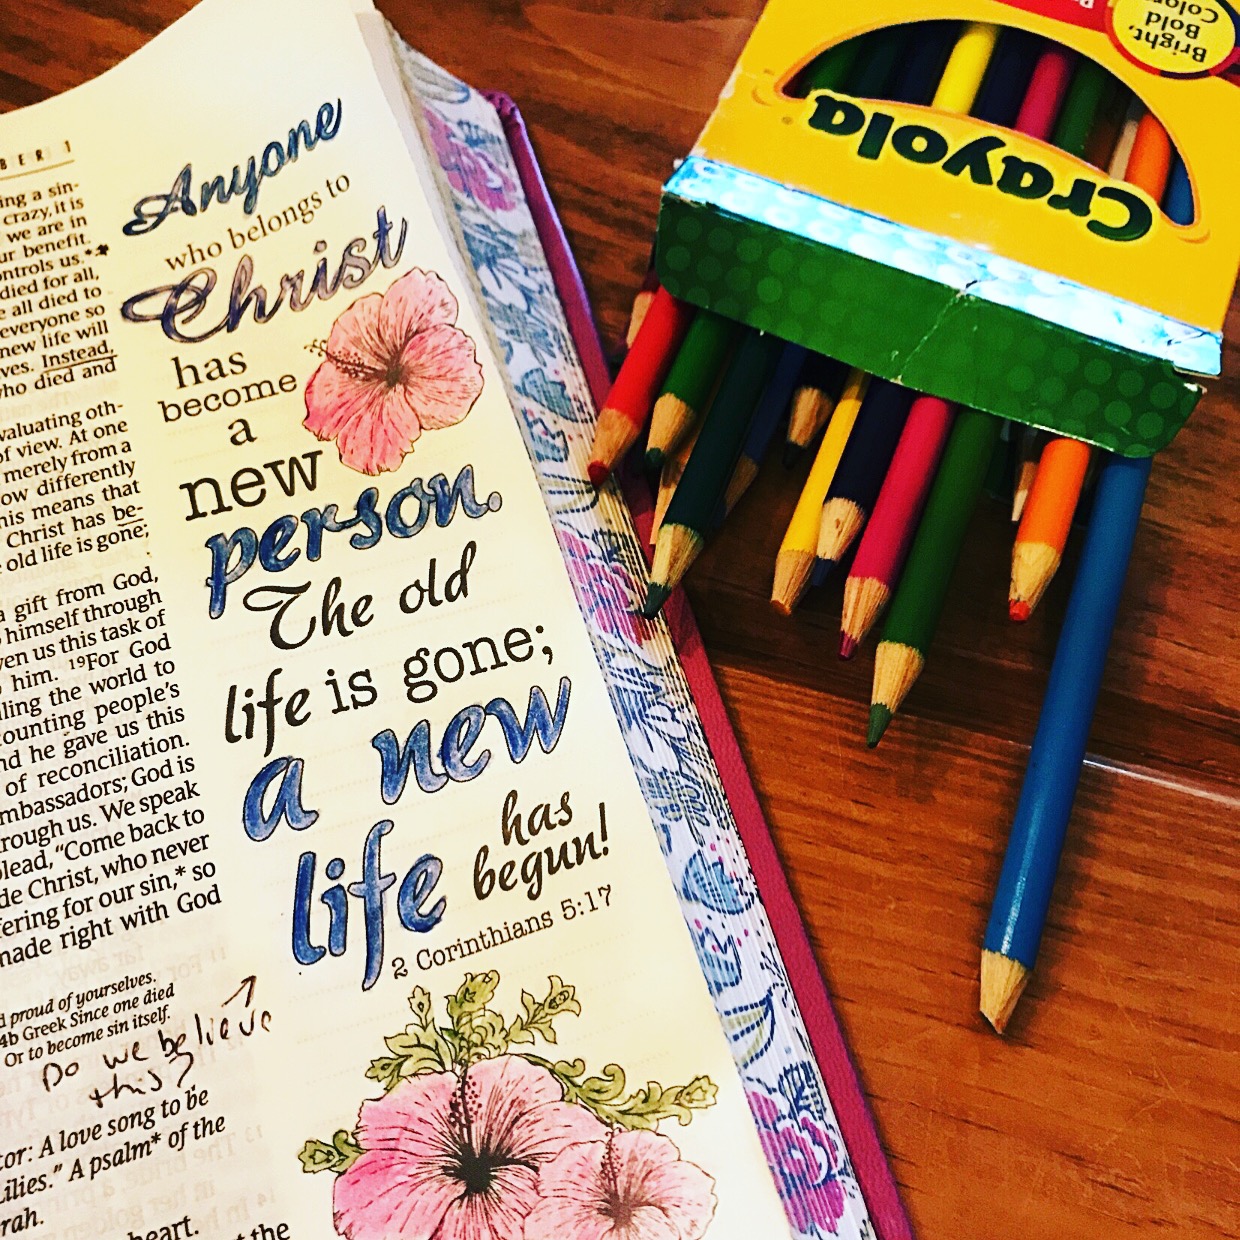 BER 1
ing a sin-
crazy, it is
we are in
ur benefit.
ontrols us.*
died for all,
all died to
everyone so
new life will
ves. Instead,
who died and
valuating oth-
of view. At one
merely from a
ow differently
his means that
Christ has be-
old life is gone;
a gift from God,
himself through
ven us this task of
him. 19For God
ling the world to
ounting people's
nd he gave us this
of reconciliation.
mbassadors; God is
rough us. We speak
plead, "Come back to
de Christ, who never
fering for our sin,* so
made right with God
d proud of yourselves.
4b Greek Since one died
Or to become sin itself.
Do we believe
this?
tor: A love song to be
ilies." A psalm* of the
rah.
heart.
t the
Anyone
who belongs to
Christ
has
become
a
new
person.
The old
life is gone;
a new
life
has
begun!
2 Corinthians 5:17
Crayola
Bright,
Bold
Colo